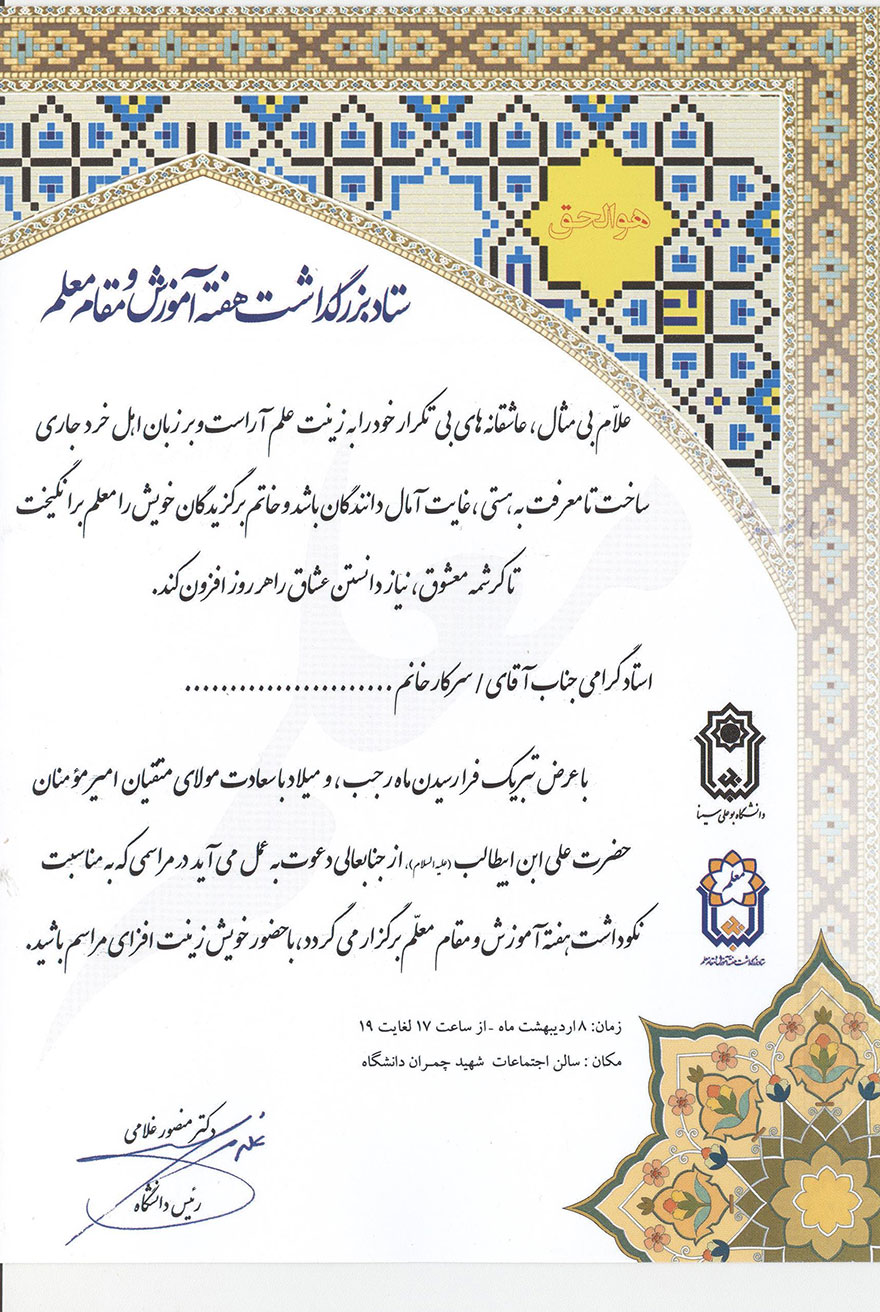 هوالحق
ستاد بزرگداشت هفته آموزش و مقام معلم
علاّم بی مثال، عاشقانه های بی تکرار خود را به زینت علم آراست و بر زبان اهل خرد جاری
ساخت تا معرفت به هستی، غایت آمال دانندگان باشد و خاتم برگزیدگان خویش را معلم برانگیخت
تا کرشمه معشوق، نیاز دانستن عشاق را هر روز افزون کند.
استاد گرامی جناب آقای / سرکار خانم .......................
با عرض تبریک فرا رسیدن ماه رجب، و میلاد با سعادت مولای متقیان امیر مؤمنان
حضرت علی ابن ابیطالب (علیه السلام)، از جنابعالی دعوت به عمل می آید در مراسمی که به مناسبت
نکوداشت هفته آموزش و مقام معلّم برگزار می گردد، با حضور خویش زینت افزای مراسم باشید.
دانشگاه بوعلی سینا
معلم
ستاد بزرگداشت هفته آموزش و مقام معلم
زمان: ۸ اردیبهشت ماه - از ساعت ۱۷ لغایت ۱۹
مکان : سالن اجتماعات شهید چمـران دانشگاه
دکتر منصور غلامی
رئیس دانشگاه